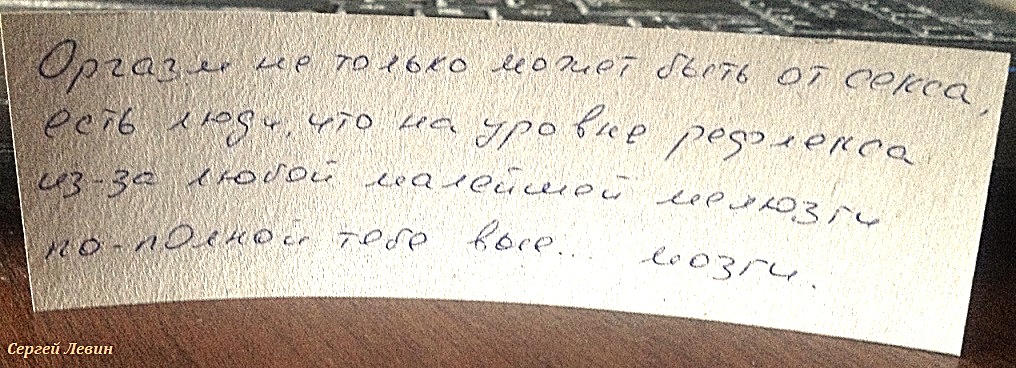 Оргазм не только может быть от секса,
есть люди, что на уровне рефлекса
из-за любой малейшей мелюзги
по-полной тебе вые... мозги.
Сергей Левин